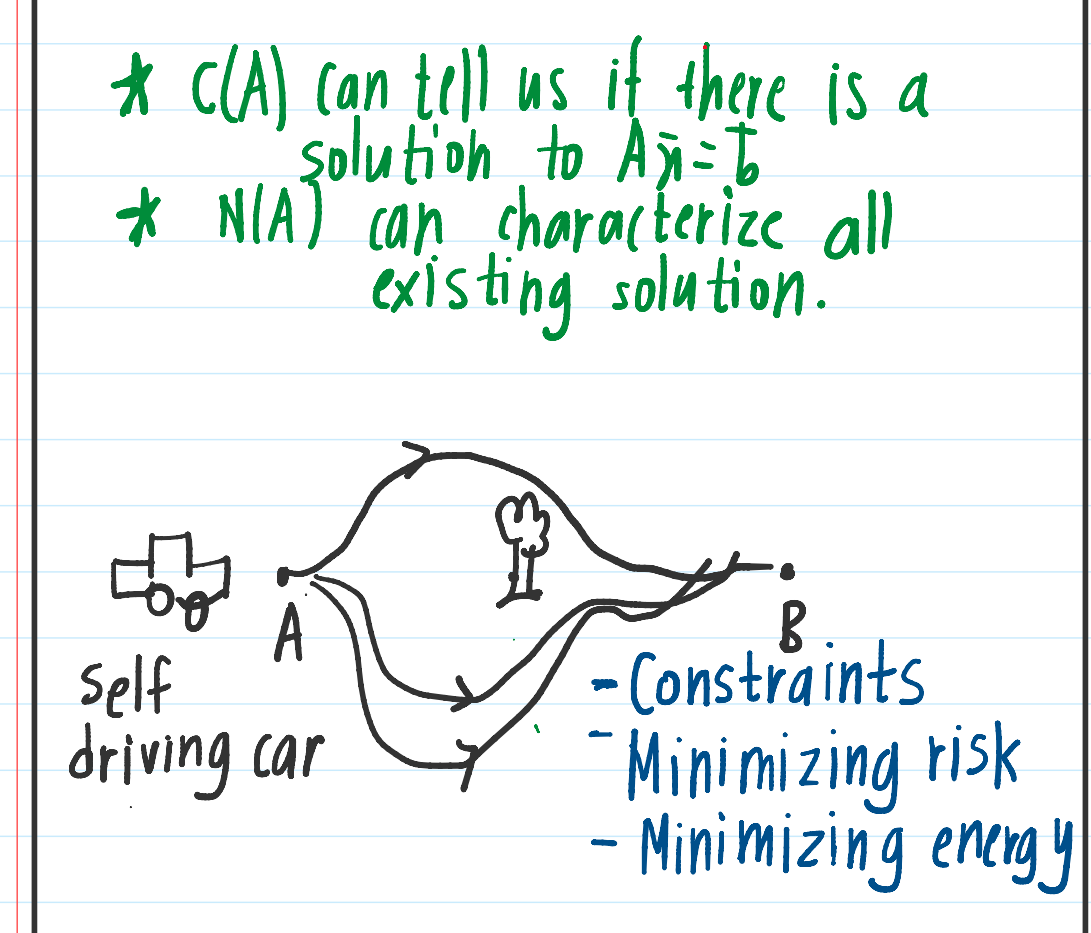 * C(A) can tell us if there is a
solution to Ax̄=b̄
* N(A) can characterize all
existing solution.
A
B
self
driving car
- Constraints
- Minimizing risk
- Minimizing energy